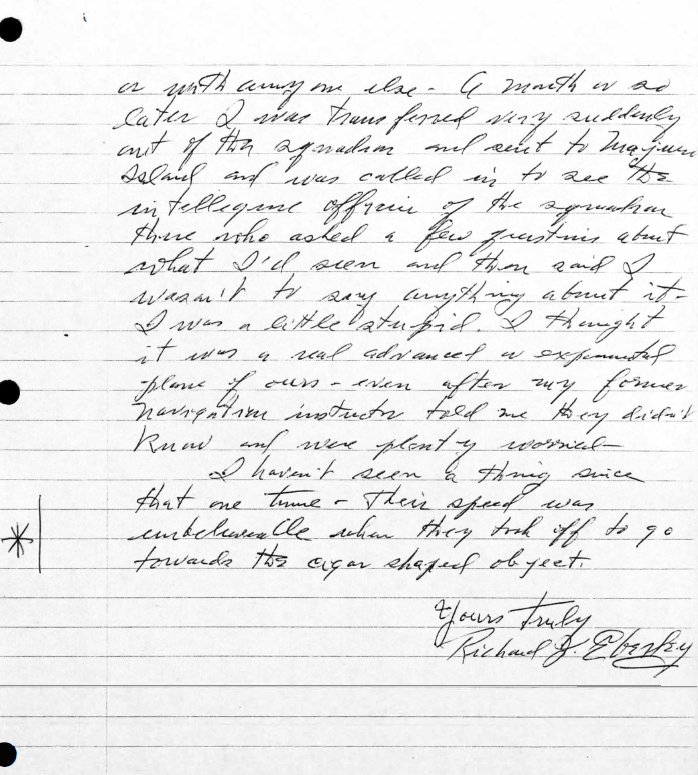 or with anyone else - A month or so
later I was transferred very suddenly
out of the squadron and sent to Majuro
Island and was called in to see the
intelligence officer of the squadron
there who asked a few questions about
what I'd seen and then said I
wasn't to say anything about it -
I was a little stupid. I thought
it was a real advanced or experimental
plane of ours - even after my former
navigation instructor told me they didn't
know and were plenty worried -
I haven't seen a thing since
that one time - Their speed was
unbelievable when they took off to go
towards the cigar shaped object.
Yours Truly
Richard J. Ebersley